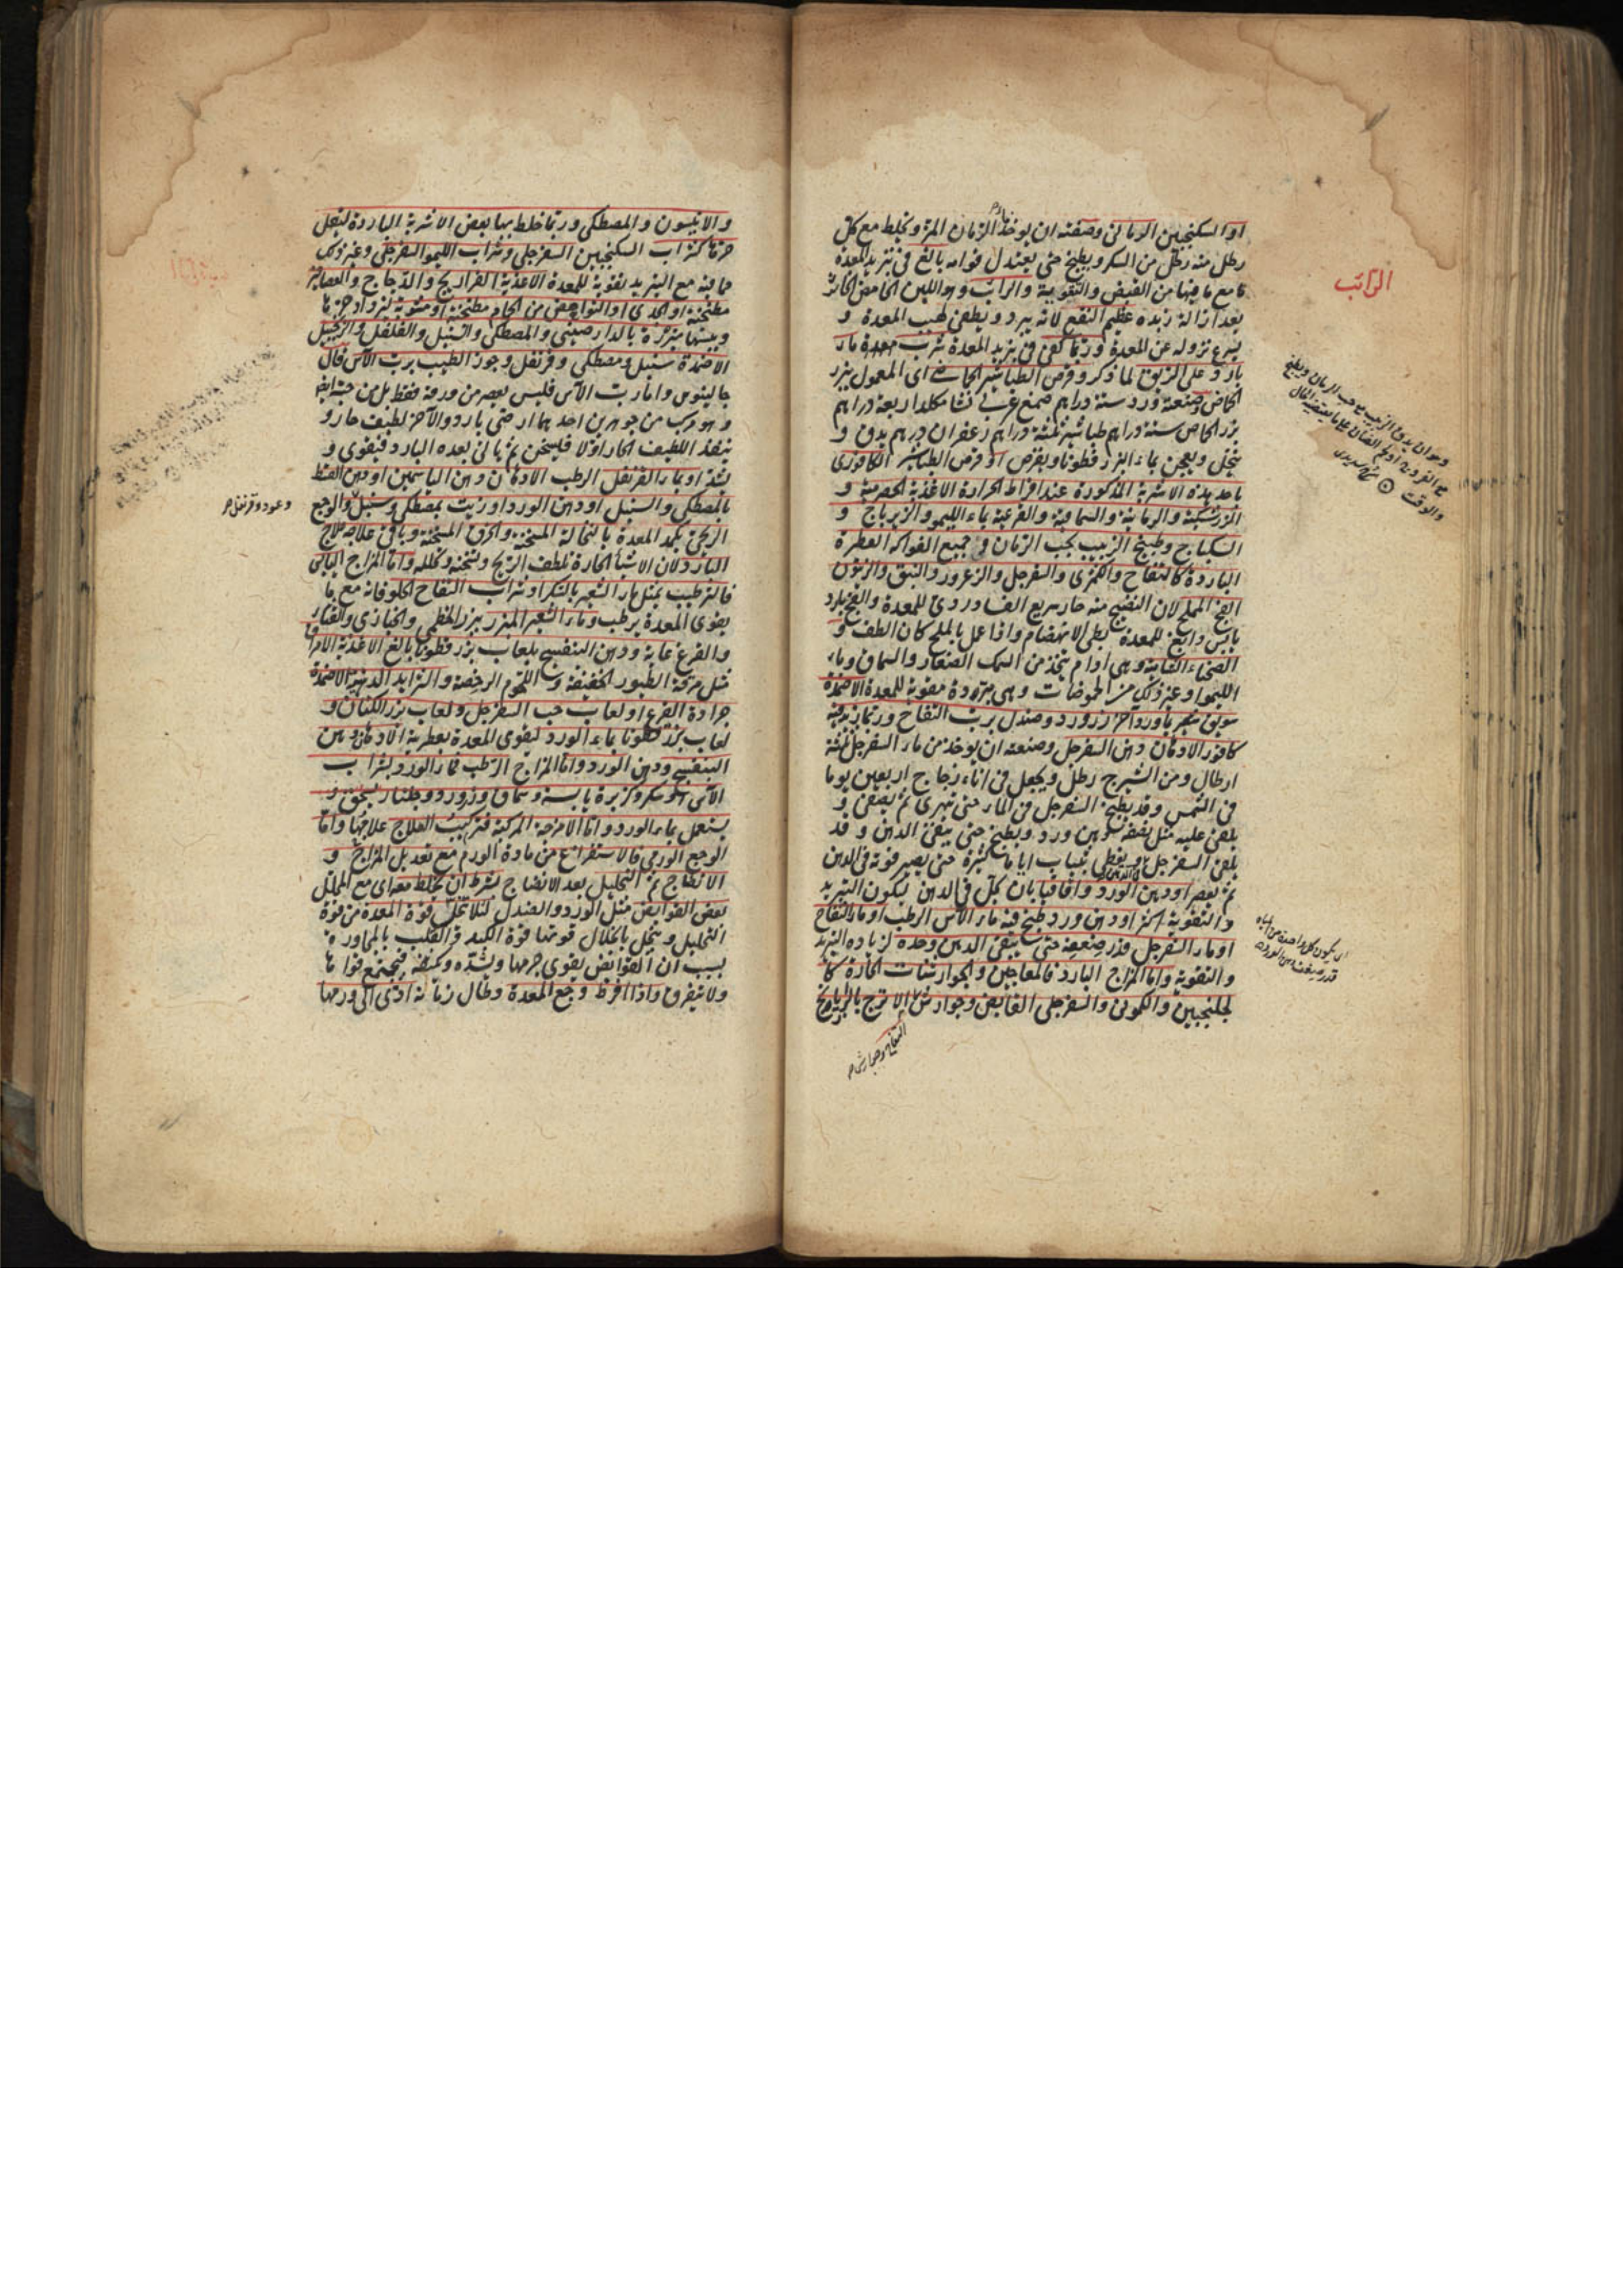 او السكنجبين الرماني وصفته ان يوخذ ماء الرمان المز ويخلط مع كل
رطل منه رطل من السكر ويطبخ حتى يعتدل قوامه بالغ في تبريد المعدة
مع ما فيها من القبض والتقوية والرائب وهو اللبن الحامض الخاثر
بعد ازالة زبده عظيم النفع لانه يبرد ويطفئ لهيب المعدة و
يسرع نزوله عن المعدة وربما كفى في تبريد المعدة شرب ماء
بارد على الريق لما ذكر وقرص الطباشير الحماضي اى المعمول ببزر
الحماض وصنعته ورد ستة دراهم صمغ عربي نشا من كل اربعة دراهم
بزر الحماض ستة دراهم طباشير ثلثة دراهم زعفران درهم يدق و
ينخل ويعجن بماء البزر قطونا ويقرص او قرص الطباشير الكافوري
باحد هذه الاشربة المذكورة عند افراط الحرارة الاغذية الحصرمية و
الزرشكية والرمانية والسماقية والقرعية بماء الليمو والزيرباج و
السكباج وطبيخ الزبيب بحب الرمان و جميع الفواكه العطرة
الباردة كالتفاح والكمثرى والسفرجل والزعرور والنبق والزيتون
الفج المملح لان النضيج منه حار سريع الفساد ردي للمعدة والفج بارد
يابس دابغ للمعدة بطئ الانهضام واذا عمل بالملح كان الطف و
الصحناءة الشامية وهي ادام يتخذ من السمك الصغار والسماق وماء
الليمو او غير ذلك من الحموضات وهي مبردة مقوية للمعدة الاضمدة
سويق شعير بماء ورد وآس وزرورد وصندل برب التفاح وربما زيد فيه
كافور الادهان دهن السفرجل وصنعته ان يوخذ من ماء السفرجل ثلثة
ارطال ومن الشيرج رطل ويجعل في اناء زجاج اربعين يوما
في الشمس وقد يطبخ السفرجل في الماء حتى يتهرى ثم يصفى و
يلقى عليه مثل نصفه دهن ورد ويطبخ حتى يبقى الدهن و قد
يلقى السفرجل في الدهن ويغطى بثياب اياما كثيرة حتى يصير قوته في الدهن
ثم يعصر او دهن الورد واقاقيا بان يحل في الدهن ليكون التبريد
والتقوية اكثر او دهن ورد طبخ فيه ماء الآس الرطب او ماء التفاح
او ماء السفرجل قدر ضعفه حتى يبقى الدهن وحده لزيادة التبريد
والتقوية واما المزاج البارد فالمعاجين والجوارشنات الحارة كا
لجلنجبين والكموني والسفرجلي القابض وجوارش الاترج بالرازيانج
التفاح وجوارش
الرائب
وهو ان يدق الزبيب مع حب الرمان ويطبخ
والوقت
ان يكون كل واحد من المياه
قدر ضعف دهن الورد
والانيسون والمصطكى وربما خلط بها بعض الاشربة الباردة ليقل
حرها كشراب السكنجبين السفرجلي وشراب الليمو السفرجلي وغير ذلك
مما فيه مع التبريد تقوية للمعدة الاغذية الفراريج والدجاج والعصافير
مطجنة او الجدى او النواهض من الحمام مطجنة او مشوية لتزداد حرها
ويبسها مبزرة بالدار صيني والمصطكى والسنبل والفلفل والزنجبيل
الاضمدة سنبل ومصطكى وقرنفل وجوز الطيب برب الآس قال
جالينوس واما رب الآس فليس يعصر من ورقه فقط بل من حبه ايضا
وهو مركب من جوهرين احدهما ارضي بارد والآخر لطيف حار و
ينفذ اللطيف الحار اولا فيسخن ثم يأتى بعده البارد فيقوى و
يشد او بماء القرنفل الرطب الادهان دهن الياسمين او دهن القسط
بالمصطكى والسنبل او دهن الورد او زيت بمصطكى وسنبل والوجع
الريحي يكمد المعدة بالنخالة المسخنة والخرق المسخنة وباقي علاجه علاج
البارد لان الاشياء الحارة تلطف الريح وتسخنه وتحلله واما المزاج اليابس
فالترطيب بمثل ماء الشعير بالسكر او شراب التفاح الحلو فانه مع ما
يقوى المعدة يرطب وماء الشعير المبزر ببزر الخطمي والخبازى والقثاء
والقرع غاية ودهن البنفسج بلعاب بزر قطونا بالغ الاغذية الامراق
مثل مرقة الطيور الخفيفة و اللحوم الرخصة والثرايد الدهنية الاضمدة
جرادة القرع او لعاب حب السفرجل ولعاب بزر الكتان و
لعاب بزر قطونا بماء الورد ليقوى المعدة بعطريته الادهان دهن
البنفسج ودهن الورد واما المزاج الرطب فماء الورد بشراب
الآس او سكر وكزبرة يابسة وسماق وزرورد وجلنار يسحق و
يستعمل بماء الورد واما الامزجة المركبة فتركيب العلاج علاجها واما
الوجع الورمي فالاستفراغ من مادة الورم مع تعديل المزاج و
الانضاج ثم التحليل بعد الانضاج بشرط ان يخلط معه اى مع المحلل
بعض القوابض مثل الورد والصندل لئلا تحلل قوة المعدة من قوة
التحليل وينحل بانحلال قوتها قوة الكبد و القلب بالمجاورة
بسبب ان القوابض يقوى جرمها ويشده ويكثفه فيجتمع قواها
ولا يتفرق واذا افرط وجع المعدة وطال زمانه ادى الى ورمها
وعود وقرنفل